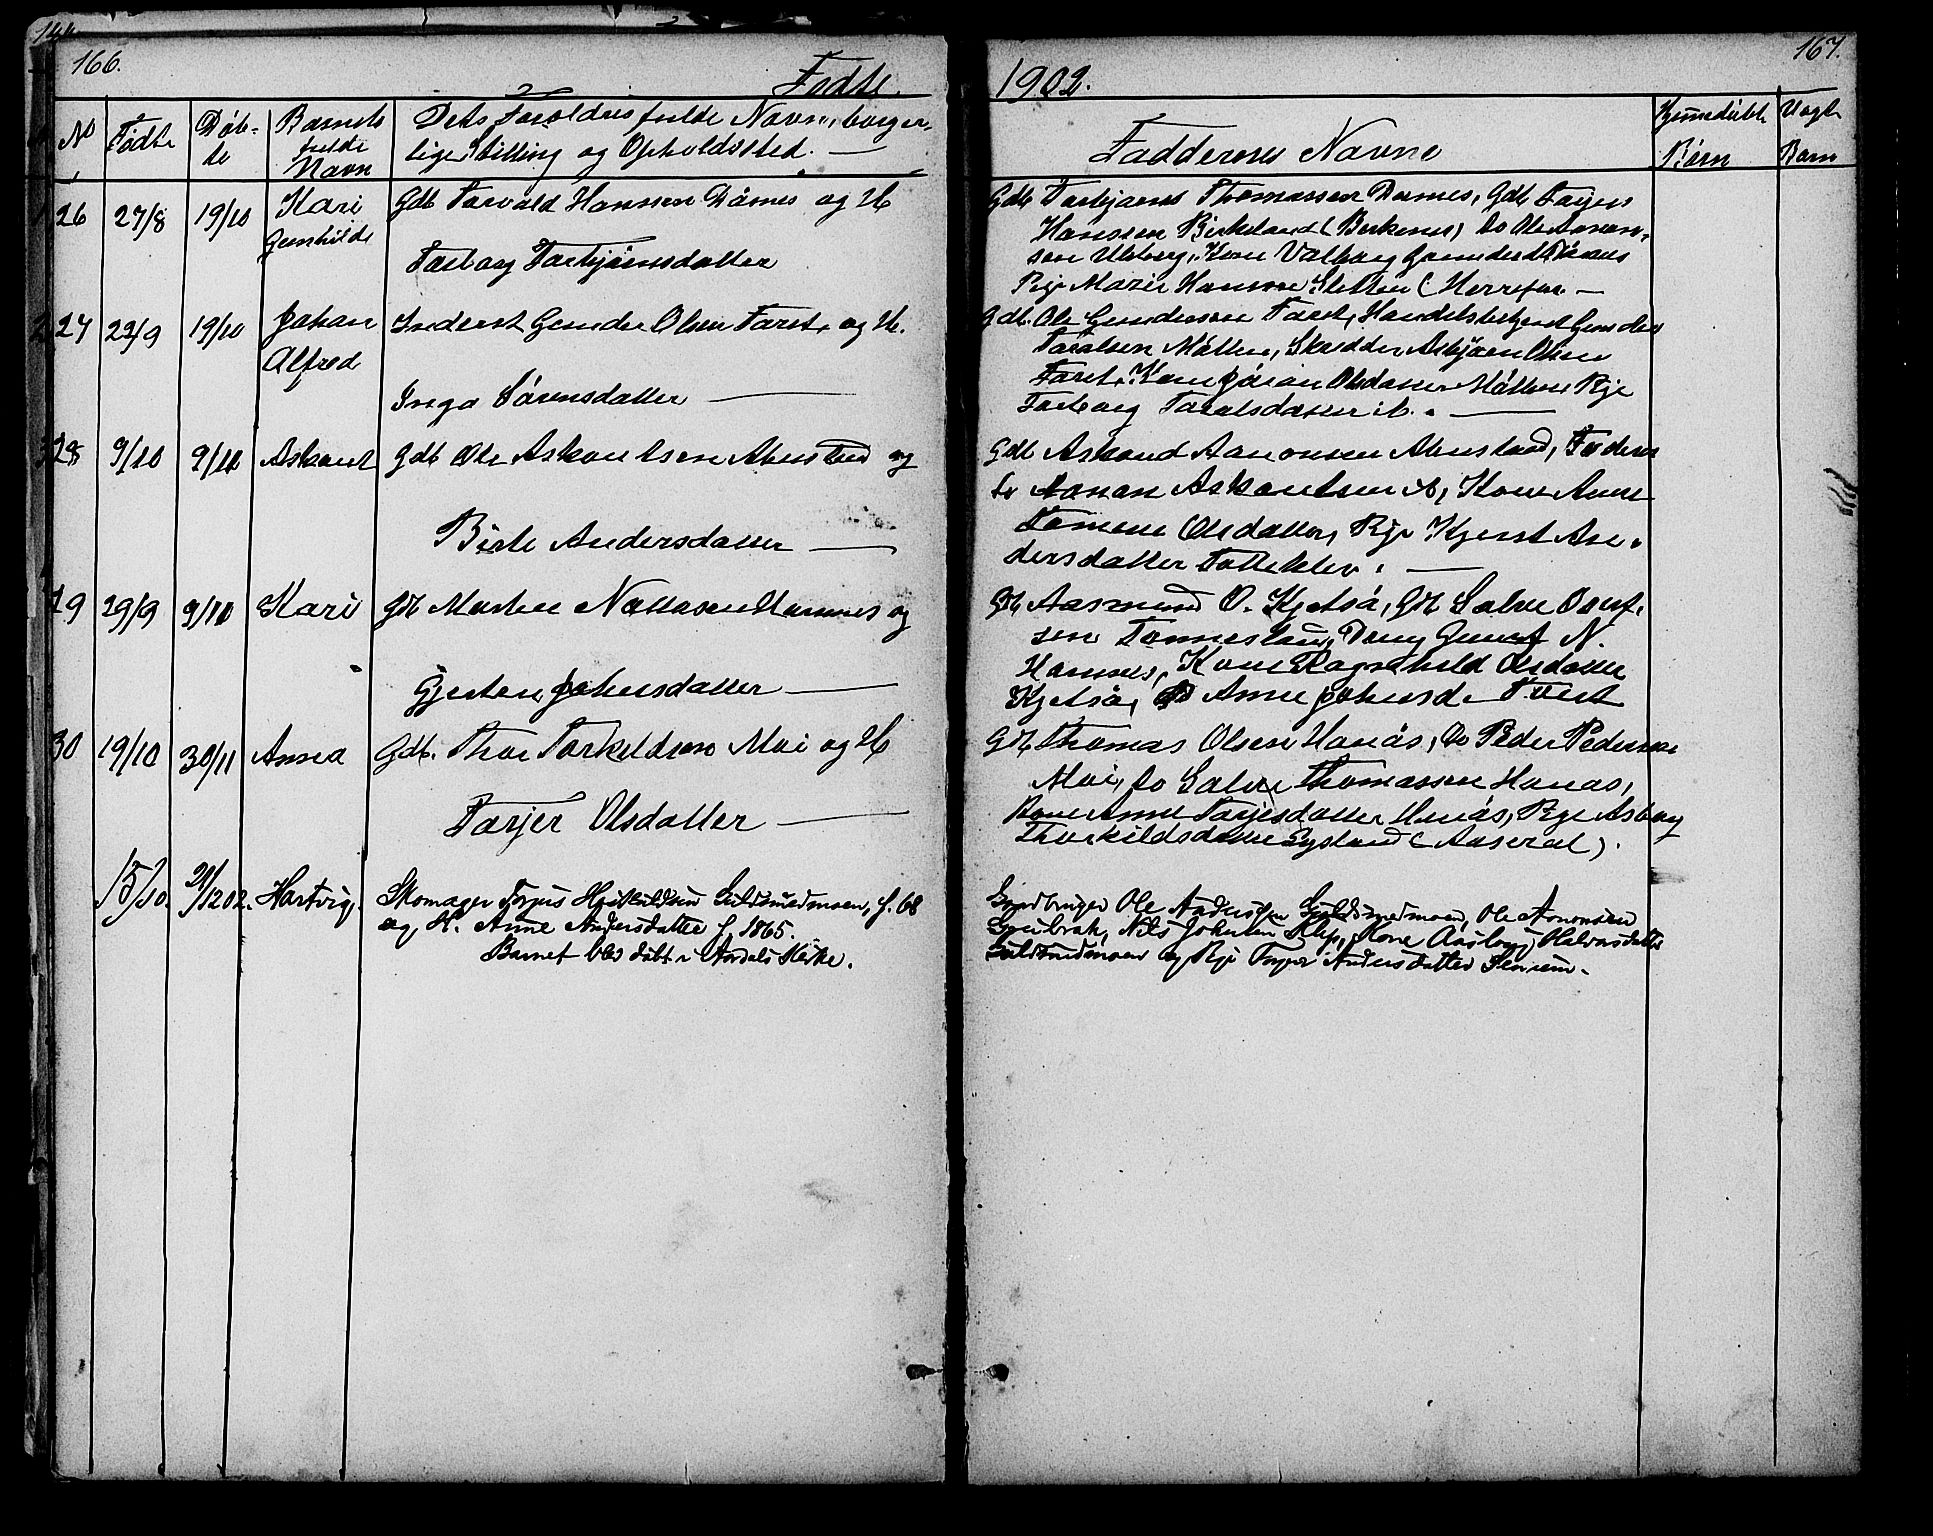 166.
Fødte
No
Fødte
Døb-
te
Barnets
fulde
Navn
Dets Forældres fulde Navn, borger-
lige Stilling og Opholdssted.
26
27/8
19/10
Kari
Gunhilde
Gdb Torvald Hanssen Dømes og H
Torborg Torbjørnsdatter
27
23/9
19/10
Johan
Alfred
Inderst Gunder Olsen Faret og H.
Inga Sørensdatter
28
9/10
9/11
Askout
Gdb Ole Askoutsen Abusland og
Birte Andersdatter
29
29/9
9/11
Kari
Gdb Morten Hamnes og
Gjerten Johnsdatter
30
19/10
30/11
Anna
Gdb. Thor Torkeldsen Moi og H
Torjer Olsdatter
15/10.
21/12 02.
Hartvig.
Skomager Torjus Guldsmedmoen, f. 68
og H. Anne Andersdatter f. 1865.
Barnet blev døbt i Aardals Kirke.
1902.
167.
Faddernes Navne
Hjemmedøbte
Børn
Uægte
Børn
Gdb Torbjørn Thomassen Dømes, Gdb Torjus
Hanssen Birkeland (Birkenes) Do Ole Aanon-
sen Uleberg, Kone Valborg Gundersd
Pige Marie Hanssen Sletten (Herrefos.
Gdb. Ole Gunderssen Faret, Handelsbetjent Gunder
Taralsen Mølla, Skrædder Asbjørn Olsen
Faret, Kone Olsdatter Mølla Pige
Torborg Taralsdatter ib.
Gdb Askoud Aanonsen Abusland, Faderen
Aanon Askoutsen A, Kone Anne
Tomine Olsdatter, Pige Kjerst An-
dersdatter
Gdb Aasmund O. Kjetså, Gdb Salve
sen Tonnesland, Dreng Gunuf N.
Hamnes, Kone Ragnhild Olsdatter
Kjetså, Do Anne Johnsd. Faret
Gdb Thomas Olsen Honås, Do Peder Pedersen
Moi, Do Salve Thomassen Honås,
Kone Anne Torjusdatter Honås, Pige Asborg
Thorkildsdatter Sysland (Aaseral).
Gaardbruger Ole Andersen Guldsmedmoen, Ole Aanonsen
Nils Johnsen Klep, Kone Aasborg Halvorsdatter
Guldsmedmoen og Pige Torjer Andersdatter